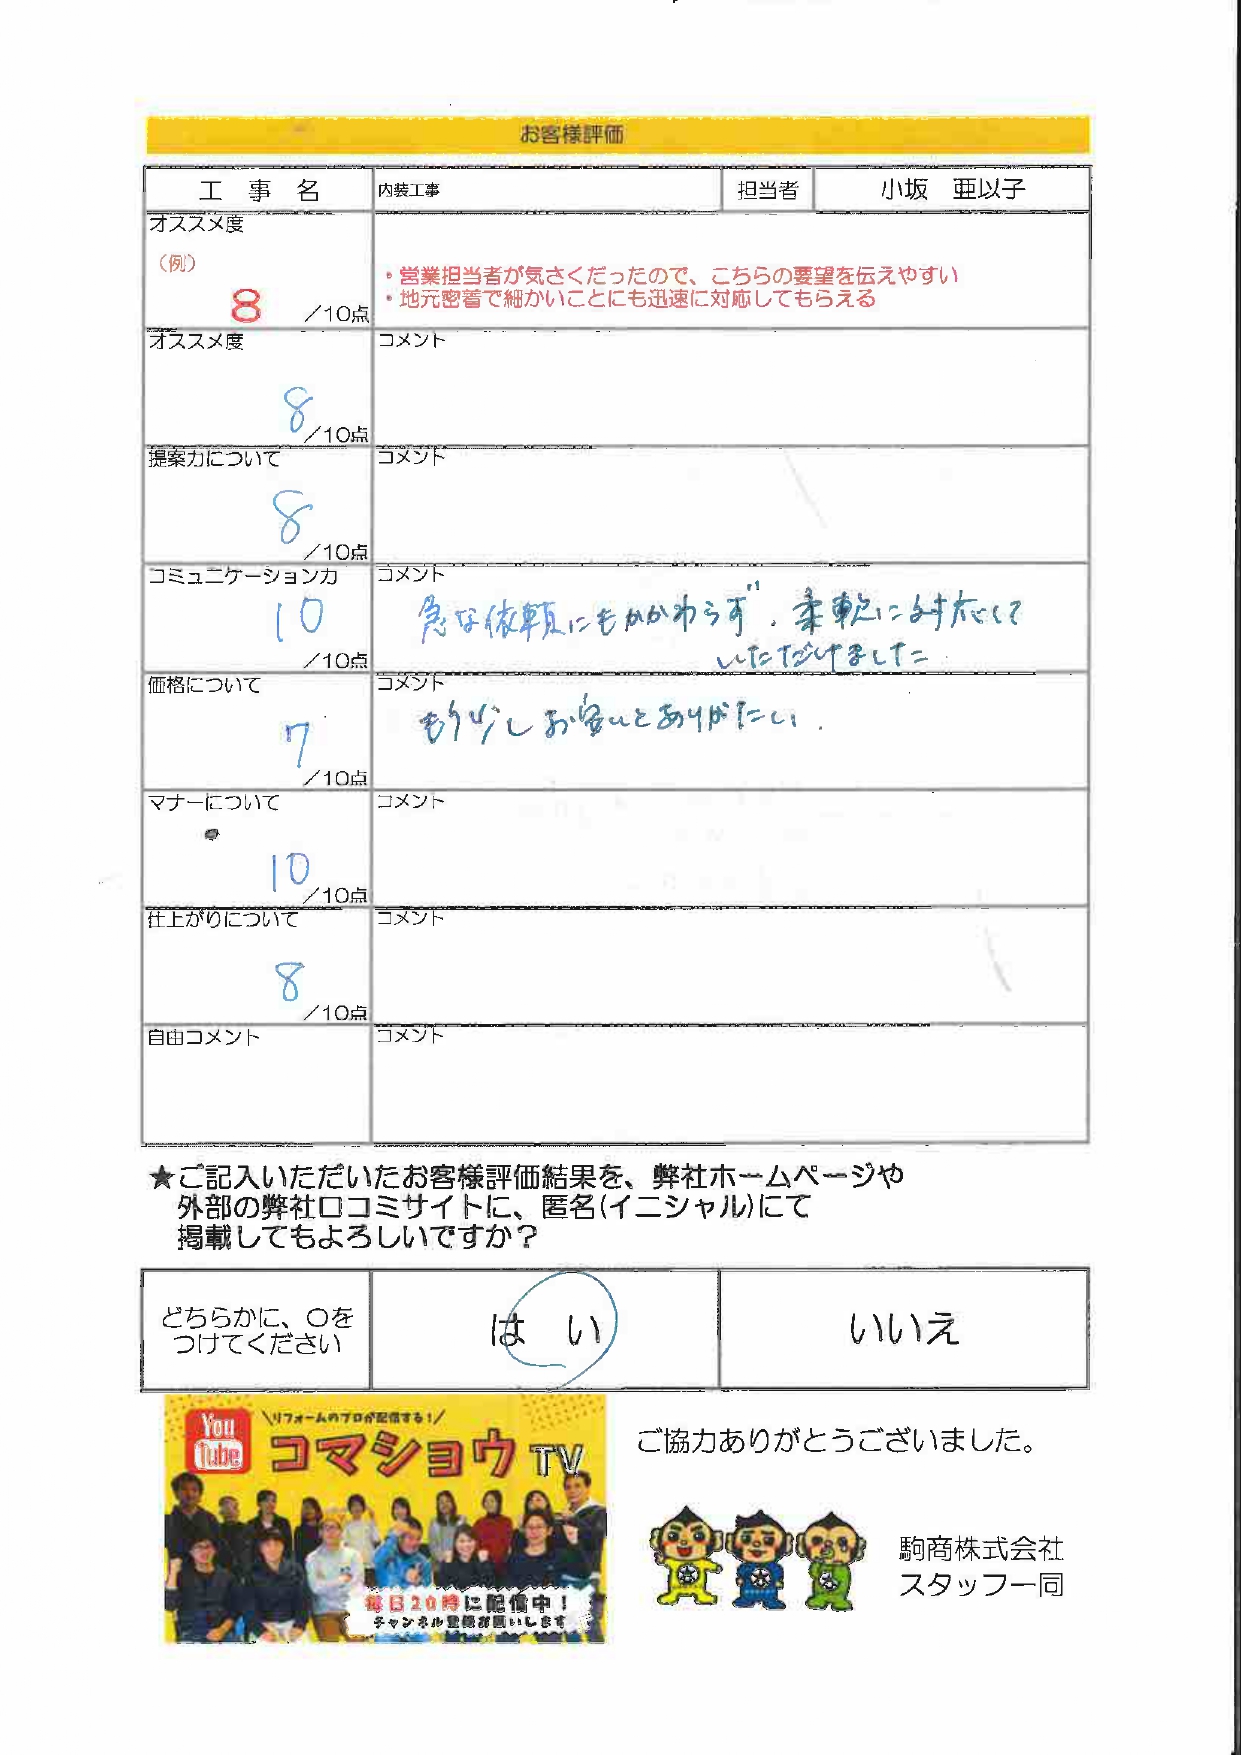 お客様評価
工 事 名 内装工事 担当者 小坂 亜以子
オススメ度
（例）
8 ／10点
・営業担当者が気さくだったので、こちらの要望を伝えやすい
・地元密着で細かいことにも迅速に対応してもらえる
オススメ度 コメント
8 ／10点
提案力について コメント
8 ／10点
コミュニケーション力 コメント
10 ／10点
急な依頼にもかかわらず、柔軟に対応して
いただけました
価格について コメント
7 ／10点
もう少しお安いとありがたい.
マナーについて コメント
10 ／10点
仕上がりについて コメント
8 ／10点
自由コメント コメント
★ご記入いただいたお客様評価結果を、弊社ホームページや
外部の弊社口コミサイトに、匿名(イニシャル)にて
掲載してもよろしいですか？
どちらかに、〇を
つけてください
は い
いいえ
You Tube
＼リフォームのプロが配信する！／
コマショウTV
毎日20時に配信中！
チャンネル登録お願いします
ご協力ありがとうございました。
駒商株式会社
スタッフ一同